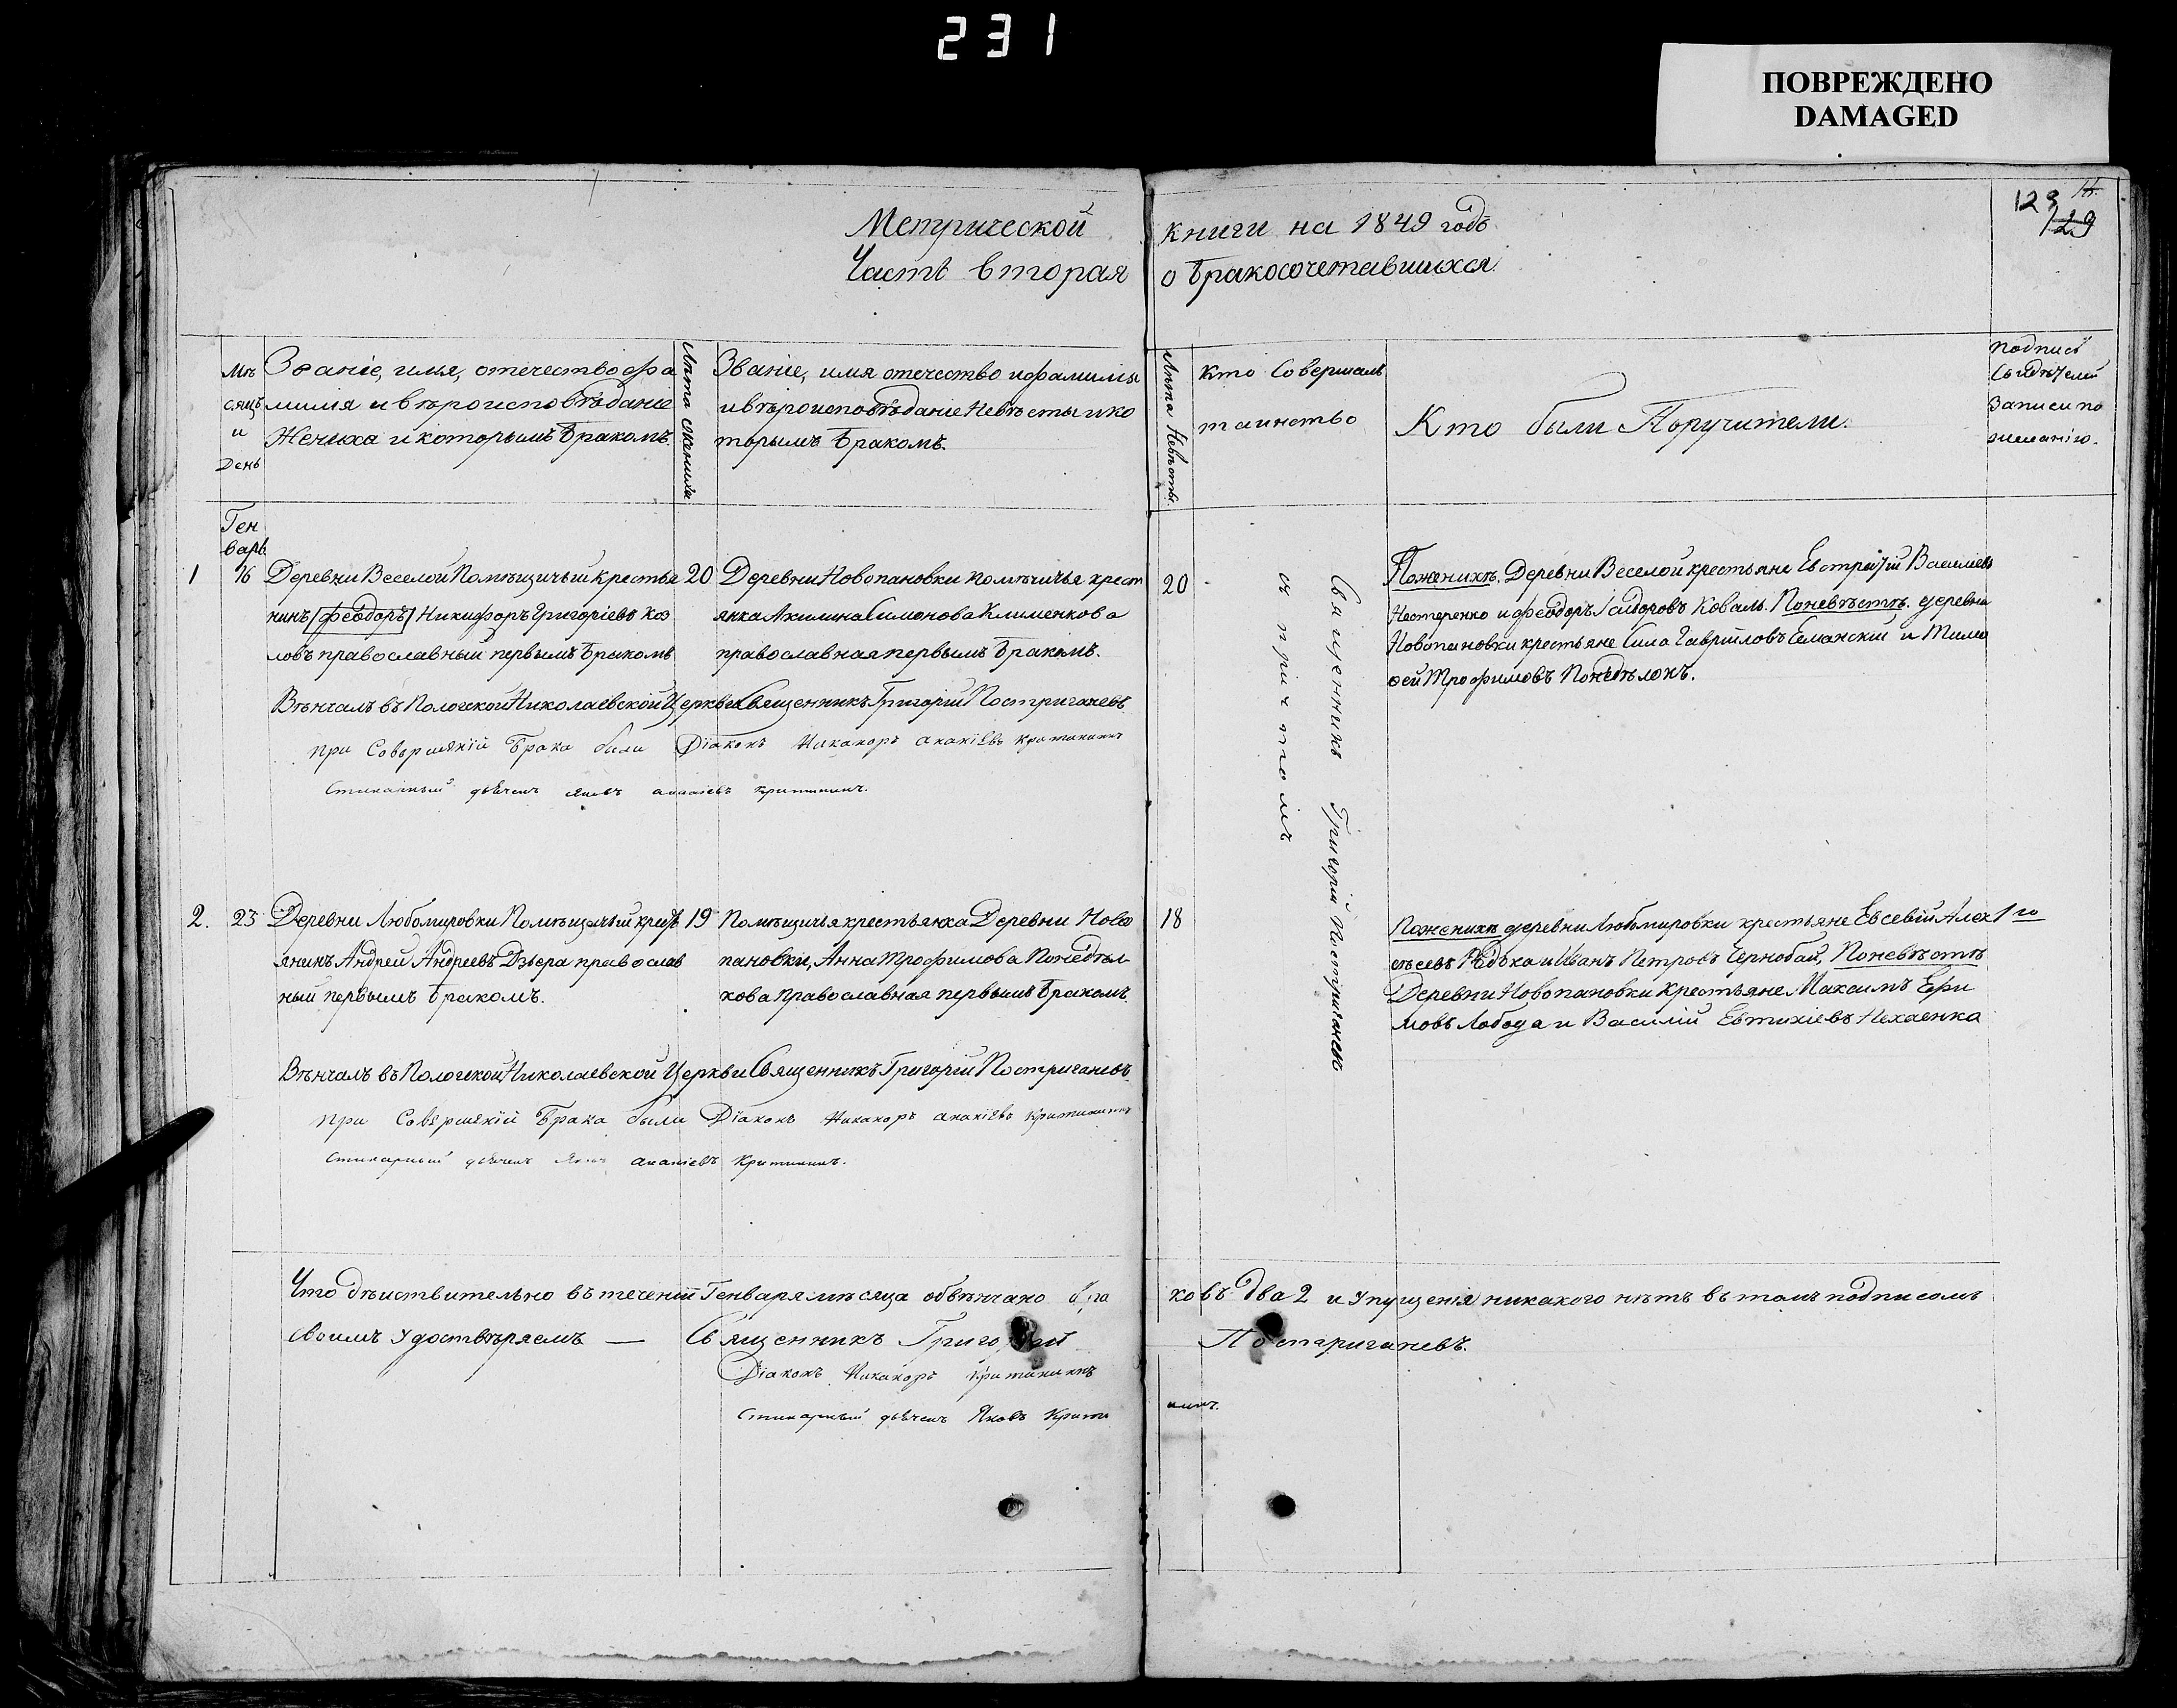 231
ПОВРЕЖДЕНО
DAMAGED
129
Метрической книги на 1849 годъ
Часть вторая о бракосочетавшихся.
Мѣсяцъ и День
Званіе, имя, отечество фа
милия и вѣроисповѣданіе
Жениха и которымъ бракомъ.
Лѣта жениха
Званіе, имя отечество и фамилия
и вѣроисповѣданіе Невѣсты и ко
торымъ бракомъ.
Лѣта Невѣсты.
Кто Совершалъ
таинство
Кто были Поручители.
Подпись
Свидѣтелей
Записи по
желанію.
Генварь
1
16
Деревни Веселой Помѣщичьій крестья
нинъ [феодоръ] Никифоръ Григоріевъ Коз
ловъ православный первымъ бракомъ
20
Деревни Новопановки помѣщичья крест
янка Акилина Симонова Клименкова
православная первымъ бракомъ.
20
Священникъ Григорій Постригачевъ
съ причтомъ
По женихѣ. Деревни Веселой крестьяне Евстратій Василіевъ
Нестеренко и феодоръ Ісидоровъ Коваль. По невѣстѣ. деревни
Новопановки крестьяне Сила Гавріиловъ Семанскій и Тимо
фей Трофимовъ Понедѣлокъ.
Вѣнчалъ въ Пологской Николаевской Церкви Священникъ Григорій Постригачевъ
при Совершеніи Брака были Діаконъ Никаноръ Ананіевъ Критининъ
Стихарный дьячекъ Яковъ ананіевъ Критининъ.
2.
23
Деревни Любомировки Помѣщичьій крест
янинъ Андрей Андреевъ Дзюра православ
ный первымъ бракомъ.
19
Помѣщичья крестьянка Деревни Ново
пановки, Анна Трофимова Понедѣл
кова православная первымъ бракомъ.
18
По женихѣ деревни Любомировки крестьяне Евсевій Алек
сѣевъ Рѣдька и Иванъ Петровъ Чернобай, По невѣстѣ
Деревни Новопановки Крестьяне Максимъ Ефи
мовъ Лобода и Василій Евтихіевъ Нехаенко
1 го
Вѣнчалъ въ Пологской Николаевской Церкви Священникъ Григорій Постригачевъ
при Совершеніи Брака были Діаконъ Никаноръ ананіевъ Критининъ
Стихарный дьячекъ Яковъ ананіевъ Критининъ.
Что дѣиствительно въ теченіи Генваря мѣсяца обвѣнчано бра
ковъ два 2 и упущенія никакого нѣтъ въ томъ подписомъ
своимъ удоствѣряемъ — Священникъ Григорій Постригачевъ.
Діаконъ Никаноръ Критининъ
Стихарный дьячекъ Яковъ Крити
нинъ.